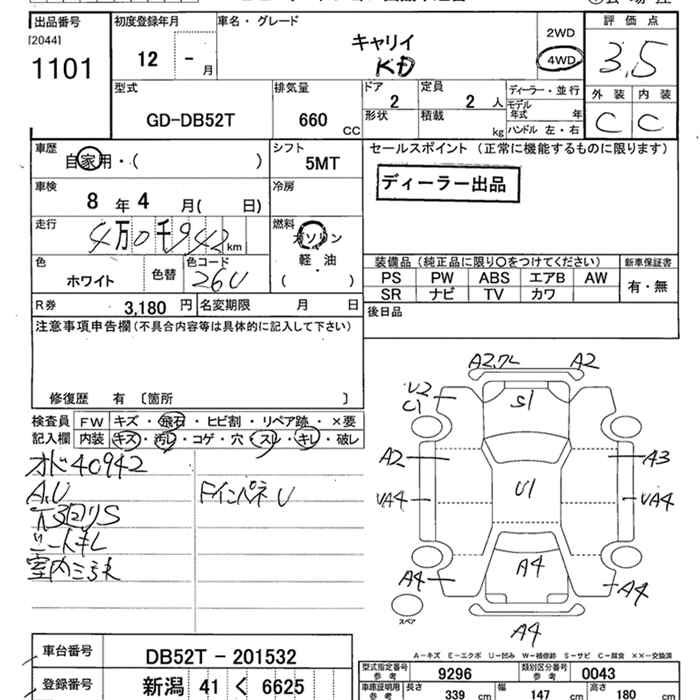 出品番号
[2044]
1101
初度登録年月
12 - 月
車名・グレード
キャリイ
KD
2WD
4WD
評価点
3.5
外装 内装
C C
型式
GD-DB52T
排気量
660 CC
ドア
2
定員
2 人
ディーラー・並行
モデル年式 年
形状
積載 kg
ハンドル 左・右
車歴
自家用・( )
シフト
5MT
セールスポイント (正常に機能するものに限ります)
ディーラー出品
車検
8 年 4 月( 日)
冷房
走行
4万0千942 km
燃料
ガソリン
軽・油
( )
色
ホワイト
色替
色コード
26U
装備品 (純正品に限り〇をつけてください)
PS PW ABS エアB AW
SR ナビ TV カワ
新車保証書
有・無
R券
3,180 円
名変期限 月 日
後日品
注意事項申告欄 (不具合内容等は具体的に記入して下さい)
修復歴 有 〔箇所 〕
検査員記入欄
FW キズ・飛石・ヒビ割・リペア跡・×要
内装 キズ・汚レ・コゲ・穴・スレ・キレ・破レ
オド40942
A.U
下回りS
シートキレ
室内ヨゴレ
Fインパネ U
A2.フレ A2
U2
C1
S1
A2 A3
UA4 U1 UA4
A4 A4 A4
A4
スペア
A-キズ E-エクボ U-凹み W-補修跡 S-サビ C-腐食 ××-交換済
車台番号
DB52T - 201532
登録番号
新潟 41 く 6625
型式指定番号 参考
9296
類別区分番号 参考
0043
車庫証明用 参考
長さ 339 cm 幅 147 cm 高さ 180 cm